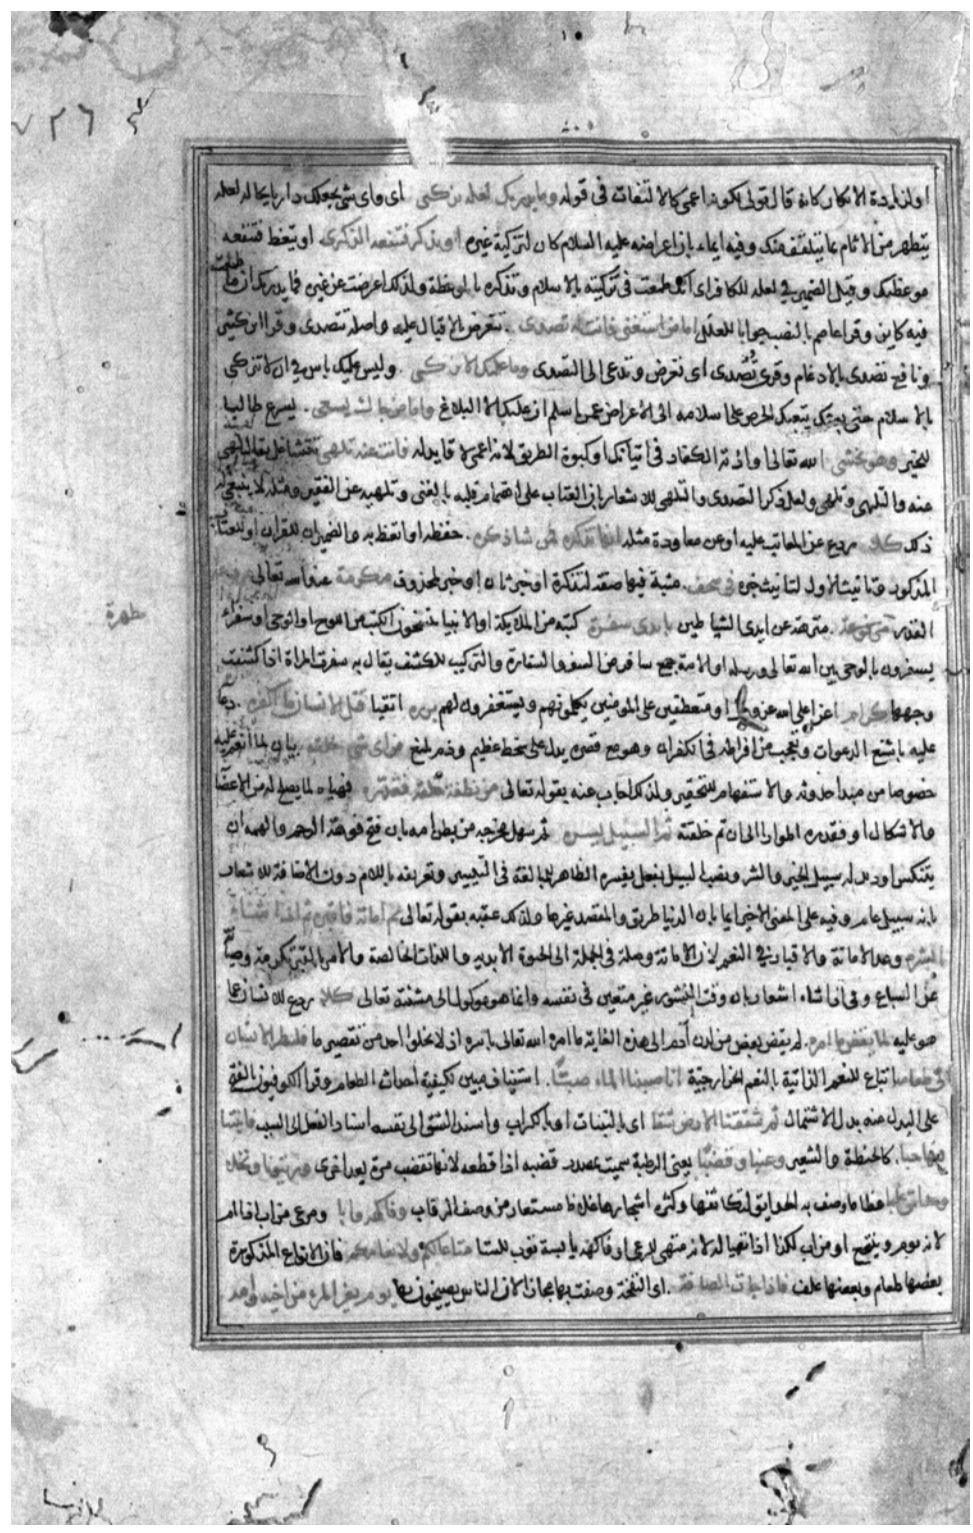 او لزيادة الانكار كانه قال تولى لكونه اعمى كالالتفات فى قوله وما يدريك لعله يزكى اى واى شئ يجعلك داريا بحاله لعله
يتطهر من الاثام بما يتلقف منك وفيه ايماء بان اعراضه عليه السلام كان لتزكية غيره او يذكر فتنفعه الذكرى او يتعظ فتنفعه
موعظتك وقيل الضمير فى لعله للكافر اى انك طمعت فى تزكيته بالاسلام وتذكره بالموعظة ولذلك اعرضت عن غيره فما يدريك ان ما طمعت
فيه كاين وقرا عاصم بالنصب جوابا للعل اما من استغنى فانت له تصدى تتعرض بالاقبال عليه واصله تتصدى وقرا ابن كثير
ونافع تصدى بالادغام وقرئ تُصدى اى تعرض وتدعى الى التصدى وما عليك الا يزكى وليس عليك باس فى ان لا يتزكى
بالاسلام حتى يبعثك الحرص على اسلامه الى الاعراض عمن اسلم ان عليك الا البلاغ واما من جاءك يسعى يسرع طالبا
للخير وهو يخشى الله تعالى او اذية الكفار فى اتيانك او كبوة الطريق لانه اعمى لا قايد له فانت عنه تلهى تتشاغل يقال لهى
عنه والتهى وتلهى ولعل ذكر التصدى والتلهى للاشعار بان العتاب على اهتمام قلبه بالغنى وتلهيه عن الفقير ومثله لا ينبغى له
ذلك كلا ردع عن المعاتب عليه او عن معاودة مثله انها تذكرة فمن شا ذكره حفظه او اتعظ به والضميران للقران او للعتاب
المذكور وتانيث الاول لتانيث خبره فى صحف مثبتة فيها صفة لتذكرة او خبر ثان او خبر لمحذوف مكرمة عند الله تعالى مرفوعة
القدر مطهرة منزهة عن ايدى الشياطين بايدى سفرة كتبة من الملايكة او الانبيا ينتسخون الكتب من اللوح او الوحى او سفراء
يسفرون بالوحى بين الله تعالى ورسله او الامة جمع سافر من السفر والسفارة والتركيب للكشف يقال سفرت المراة اذا كشفت
وجهها كرام اعزا على الله عز وجل او متعطفين على المومنين يكلمونهم ويستغفرون لهم بررة اتقيا قتل الانسان ما اكفره دعا
عليه باشنع الدعوات وتعجب من افراطه فى الكفران وهو مع قصره يدل على سخط عظيم وذم بليغ من اى شئ خلقه بيان لما انعم عليه
خصوصا من مبدا حدوثه والاستفهام للتحقير ولذلك اجاب عنه بقوله تعالى من نطفة خلقه فقدره فهياه لما يصلح له من الاعضا
والاشكال او فقدره اطوارا الى ان تم خلقته ثم السبيل يسره ثم سهل مخرجه من بطن امه بان فتح فوهة الرحم والهمه ان
يتنكس او ذلل له سبيل الخير والشر ونصب السبيل بفعل يفسره الظاهر للمبالغة فى التيسير وتعريفه باللام دون الاضافة للاشعار
بانه سبيل عام وفيه على المعنى الاخير ايما بان الدنيا طريق والمقصد غيرها ولذلك عقبه بقوله تعالى ثم اماته فاقبره ثم اذا شاء
انشره وعد الاماتة والاقبار فى النعم لان الاماتة وصلة فى الجملة الى الحيوة الابدية واللذات الخالصة والامر بالقبر تكرمة وصيانة
عن السباع وفى اذا شاء اشعار بان وقت النشور غير متعين فى نفسه وانما هو موكول الى مشئته تعالى كلا ردع للانسان عما
هو عليه لما يقض ما امره لم يقض بعض من لدن آدم الى هذه الغاية ما امره الله تعالى باسره اذ لا يخلوا احد من تقصير ما فلينظر الانسان
الى طعامه اتباع للنعم الذاتية بالنعم الخارجية انا صببنا الماء صبا استيناف مبين لكيفية احداث الطعام وقرا الكوفيون بالفتح
على البدل منه بدل الاشتمال ثم شققنا الارض شقا اى بالنبات او بالكراب واسند الشق الى نفسه اسناد الفعل الى السبب فانبتنا
فيها حبا كالحنطة والشعير وعنبا وقضبا يعنى الرطبة سميت بمصدر قضبه اذا قطعه لانها تقضب مرة بعد اخرى وزيتونا ونخلا
وحدائق غلبا عظاما وصف به الحدايق لتكاثفها وكثرة اشجارها ولانها مستعار من وصف الرقاب وفاكهة وابا ومرعى من اب اذا ام
لانه يوم وينتجع او من اب لكذا اذا تهيا له لانه متهيئ للرعى او فاكهة يابسة توب للشتا متاعا لكم ولانعامكم فان الانواع المذكورة
بعضها طعام وبعضها علف فاذا جات الصاخة اى النفخة وصفت بها مجازا لان الناس يصيخون لها يوم يفر المرء من اخيه وامه
طهرة